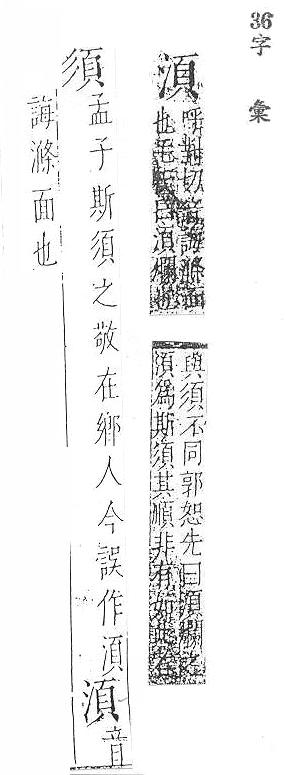 36字彙
湏
呼對切音誨滌面
也毛氏曰湏爛也
與須不同郭恕先曰湏爛之
湏為斯須其順非有如此者
須孟子斯須之敬在鄉人今誤作湏湏音
誨滌面也